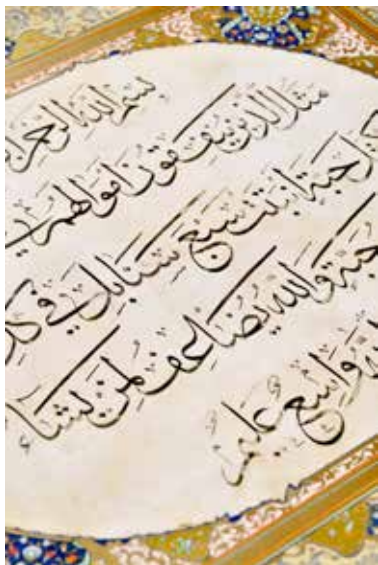 بسم الله الرحمن
مثل الذين ينفقون اموالهم
حبة انبتت سبع سنابل في كل
حبة والله يضاعف لمن يشاء
واسع عليم